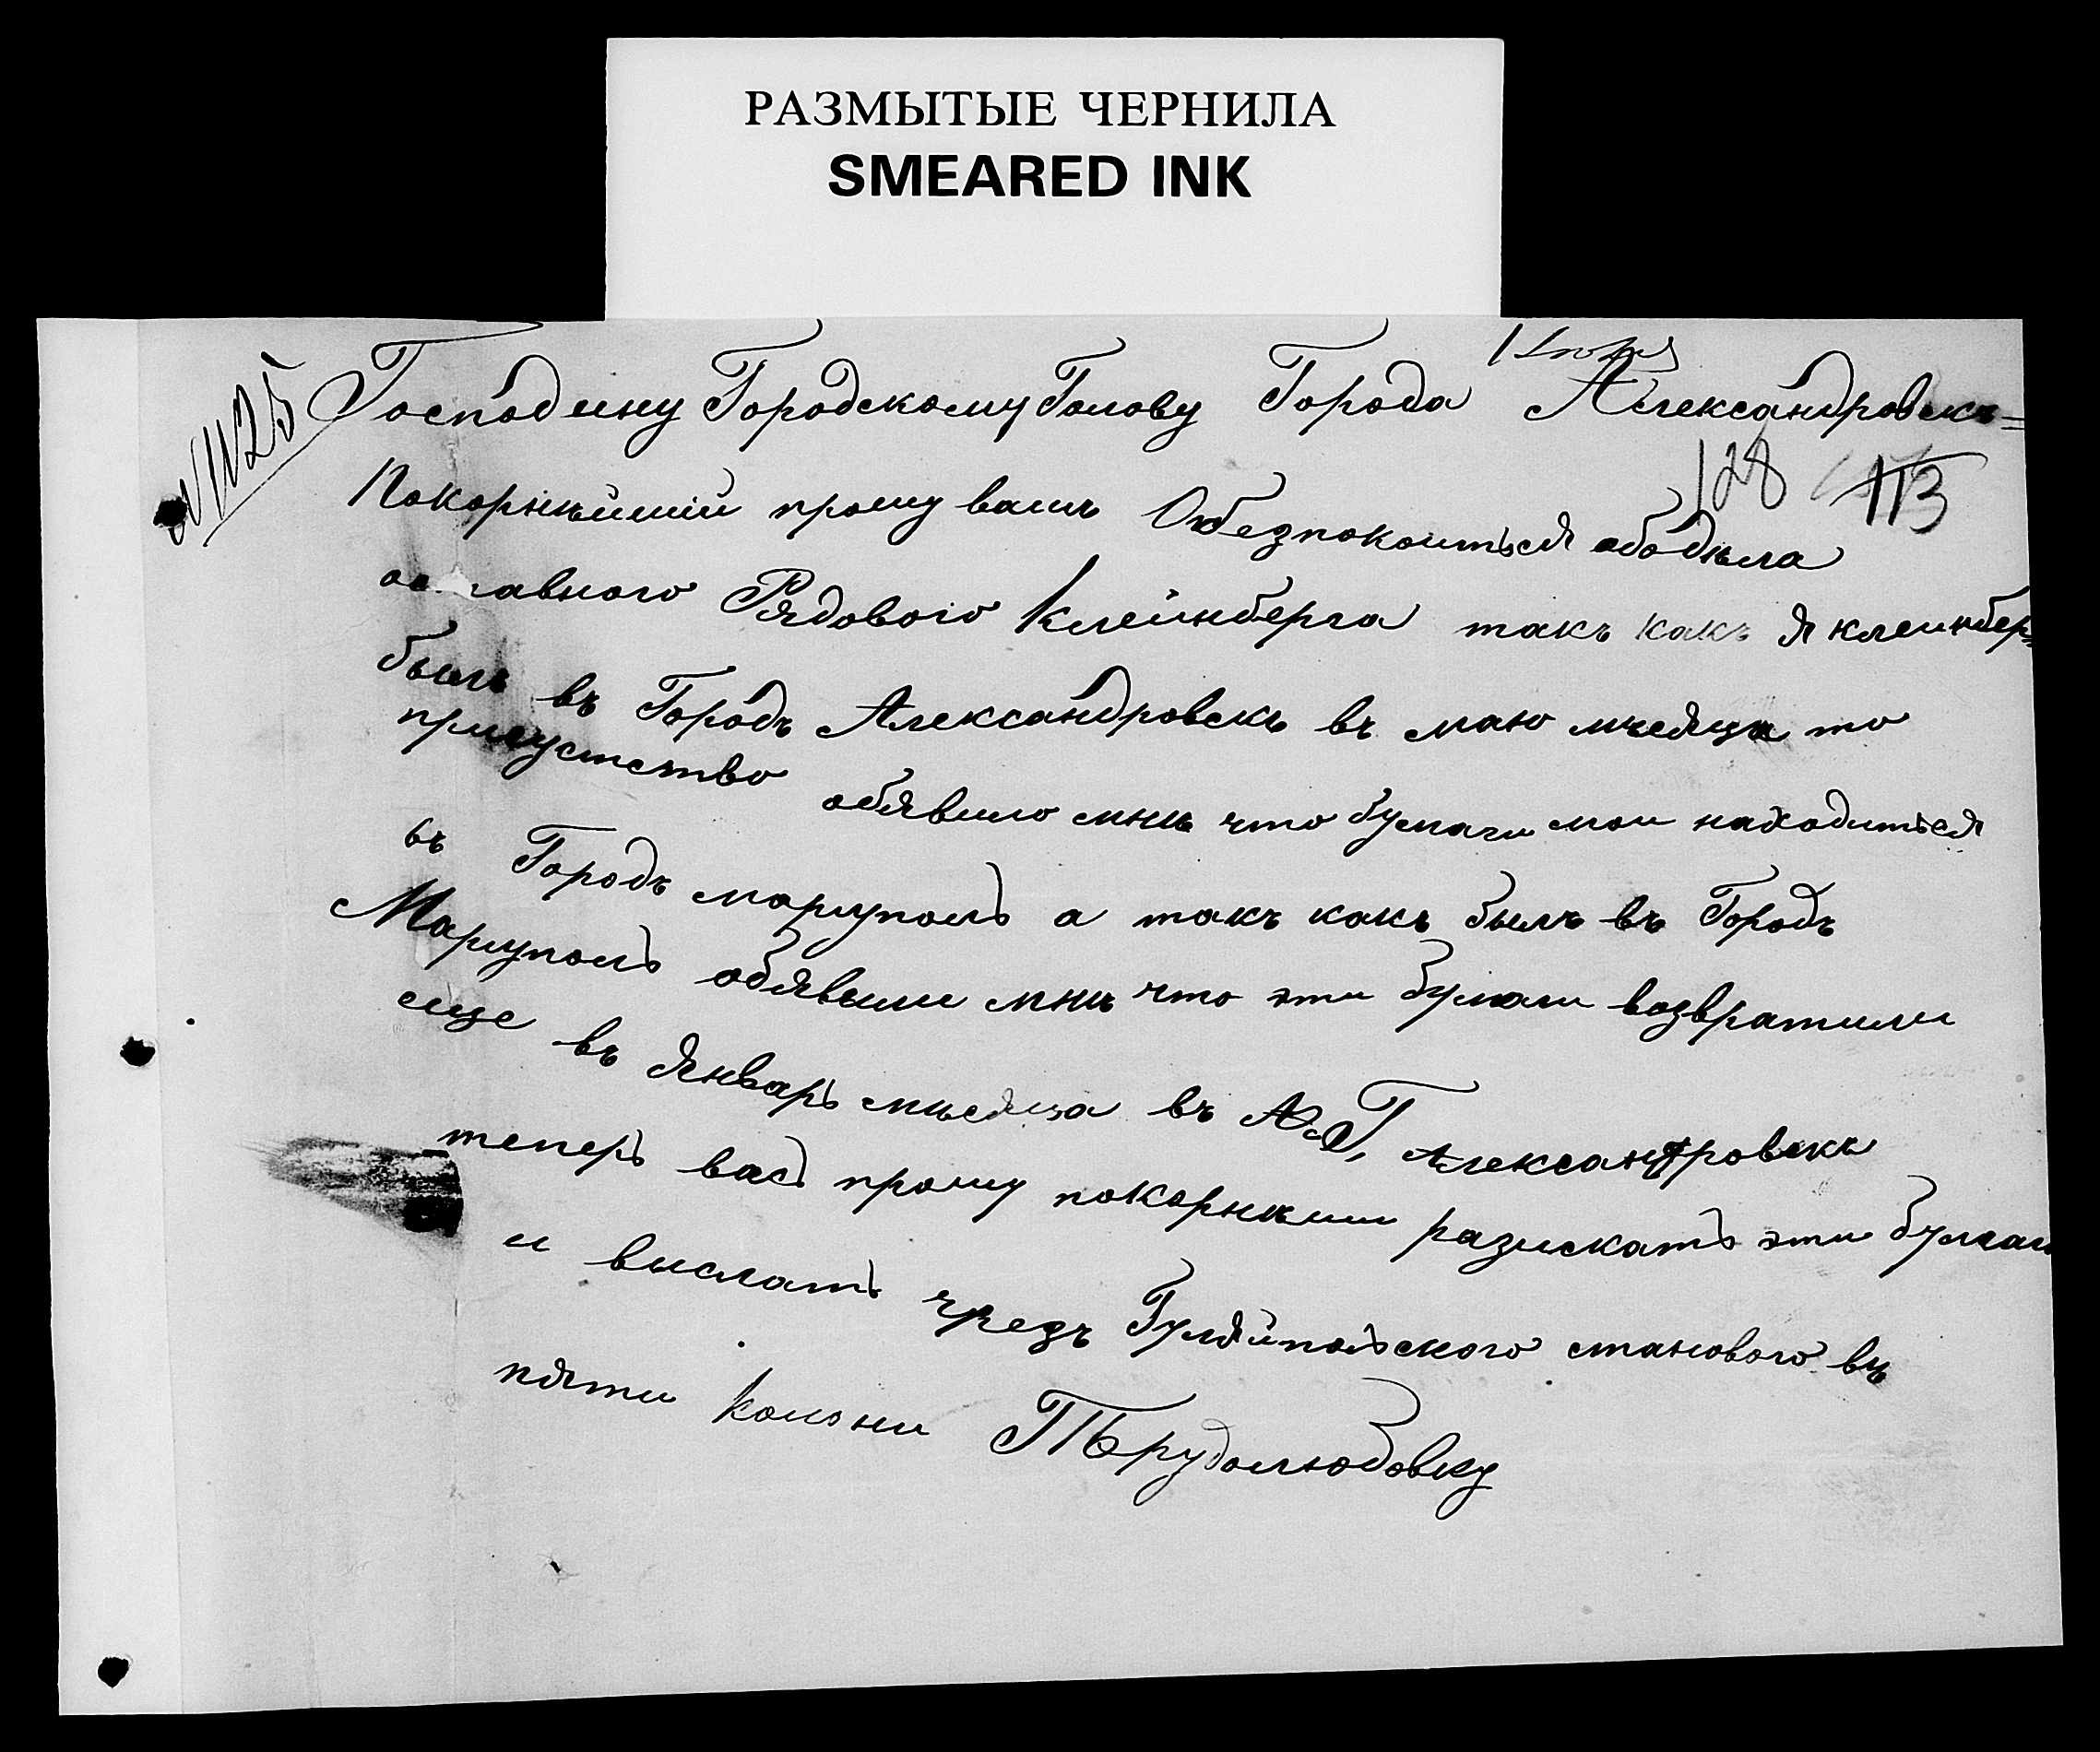 РАЗМЫТЫЕ ЧЕРНИЛА
SMEARED INK
Господину Городскому Голову Города Александровскъ=
№ 1125
128 113
Покорнѣйший прошу вашъ Обезпокоиться ободѣла
Рядового Клейнберга такъ какъ я клейнбер=
былъ въ Городъ Александровскъ въ маю мѣсяца то
присуство обявило мнѣ что бумаги мои находиться
въ Городъ мариуполь а такъ какъ былъ въ Городъ
Мариуполь обявыли мнѣ что эти бумаги возвратили
еще въ январь мѣсяца въ Г, Александровскъ
теперь вась прошу покорнѣши разискать эти бумаги
и вислать чрезъ Гуляйпольского станового въ
пяти колони Трудолюбовку